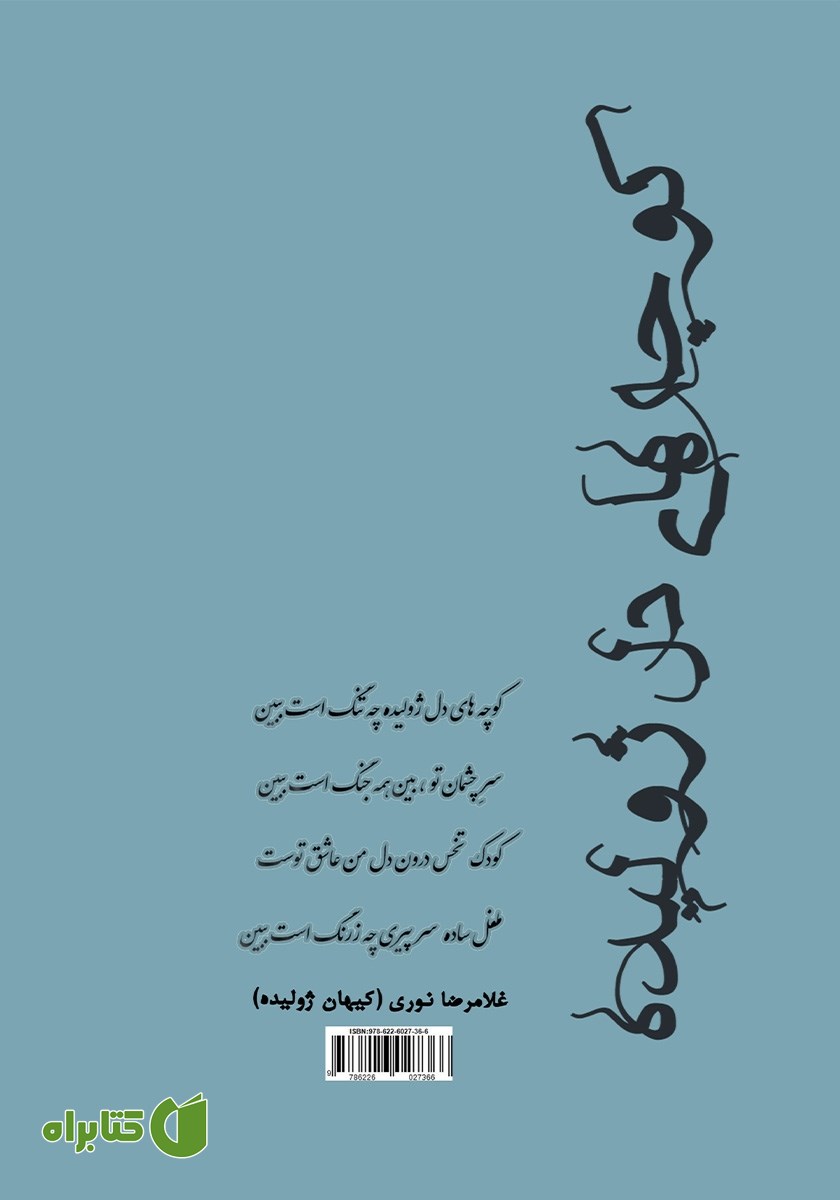 کوچه های دل ژولیده
کوچه های دل ژولیده چه تنگ است ببین
سرِ چشمان تو ، بین همه جنگ است ببین
کودک تخس درون دل من عاشق توست
طفل ساده سر پیری چه زرنگ است ببین
غلامرضا نوری (کیهان ژولیده)
ISBN:978-622-6027-36-6
9 786226 027366
کتابراه